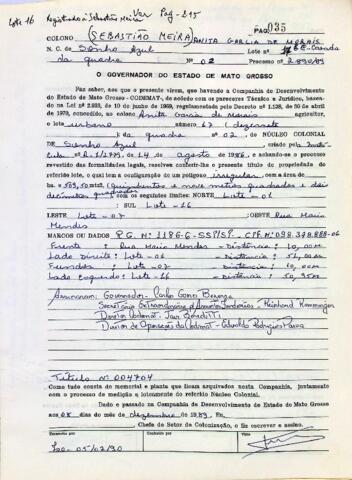 Lote 16 Registrado a Sebastião Meira Ver Pag-215
PAG. 035
(SEBASTIÃO MEIRA)
COLONO ANITA GARCIA DE MORAIS
N. C. de Sonho Azul Lote nº
da quadra Nº 02 Processo 2.890/89
O GOVERNADOR DO ESTADO DE MATO GROSSO
Faz saber, aos que o presente virem, que havendo a Companhia de Desenvolvimento
do Estado de Mato Grosso - CODEMAT-, de acôrdo com os pareceres Técnico e Jurídico,
na Lei nº 2.929, de 10 de junho de 1969, regulamentado pelo Decreto nº 1.138, de 30 de abril
de 1970, concedido ao colono Anita Garcia de Morais agricultor,
o lote urbano número
da quadra nº 02, do NÚCLEO COLONIAL
de Sonho Azul criado pela
de 14 de agosto de 1986, e achando-se o processo
revestido das formalidades legais, resolveu conferir-lhe o presente título de propriedade do
referido lote, o qual tem a configuração de um polígono irregular com a área de
509,50 mts2, (quinhentos e nove metros quadrados e
decímetros quadrados) com os seguintes limites: NORTE Lote-06
SUL Lote-16
LESTE Lote-07 OESTE Rua Maria
Mendes
MARCOS OU DADOS
Frente: Rua Maria Mendes - Distância: 10,00m
Lado Direito: Lote-06 - Distância:
Fundos: Lote-07 - Distância: 10,00m
Lado Esquerdo: Lote-16 - Distância: 50,95m
Assinaram: Governador - Carlos Gomes Bezerra
Secretário Extraordinário de Assuntos Fundiários -
Diretor Codemat -
Diretor de Operações da Codemat -
Título Nº 004704
Como tudo consta do memorial e planta que ficam arquivados nesta Companhia, juntamente
com o processo de medição e loteamento do referido Núcleo Colonial.
Dado e passado na Companhia de Desenvolvimento do Estado de Mato Grosso
aos 08 dias do mês de dezembro de 1989. Eu,
Chefe do Setor de Colonização, o fiz escrever e assino.
Conferido por
Visto
05/02/90